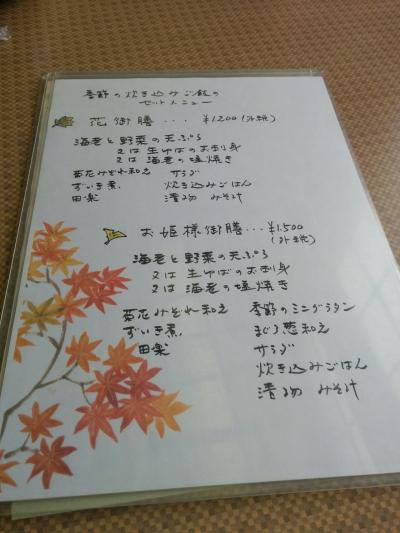 季節の炊き込みご飯の
セットメニュー
花御膳... ¥1200(外税)
海老と野菜の天ぷら
又は生ゆばのお刺身
又は海老の塩焼き
菊花みぞれ和え サラダ
ずいき煮. 炊き込みごはん
田楽 漬物 みそ汁
お姫様御膳...¥1,500
(外税)
海老と野菜の天ぷら
又は生ゆばのお刺身
又は海老の塩焼き
菊花みぞれ和え 季節のミニグラタン
ずいき煮. まぐろ葱和え
田楽 サラダ
炊き込みごはん
漬物 みそ汁